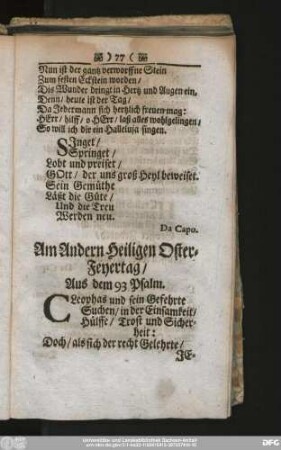 ❧ ) 77 ( ❧
Nun ist der gantz verworffne Stein
Zum festen Eckstein worden/
Dis Wunder dringt in Hertz und Augen ein.
Denn/ heute ist der Tag/
Da Jedermann sich hertzlich freuen mag:
HErr/ hilff/ o HErr/ laß alles wohlgelingen/
So will ich dir ein Halleluja singen.
SInget/
Springet/
Lobt und preiset/
GOtt/ der uns groß Heyl beweiset.
Sein Gemüthe
Läßt die Güte/
Und die Treu
Werden neu.
Da Capo.
Am Andern Heiligen Oster-
Feyertag/
Aus dem 93 Psalm.
CLeophas und sein Gefehrte
Suchen/ in der Einsamkeit/
Hülffe/ Trost und Sicher-
heit:
Doch/ als sich der recht Gelehrte/
JE-
Universitäts- und Landesbibliothek Sachsen-Anhalt
DFG